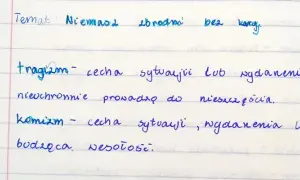 Temat: Niemasz zbrodni bez kary.
tragizm - cecha sytuacji lub wydarzeni
nieuchronnie prowadzą do nieszczęścia.
komizm - cecha sytuacji, wydarzenia
budząca wesołość.